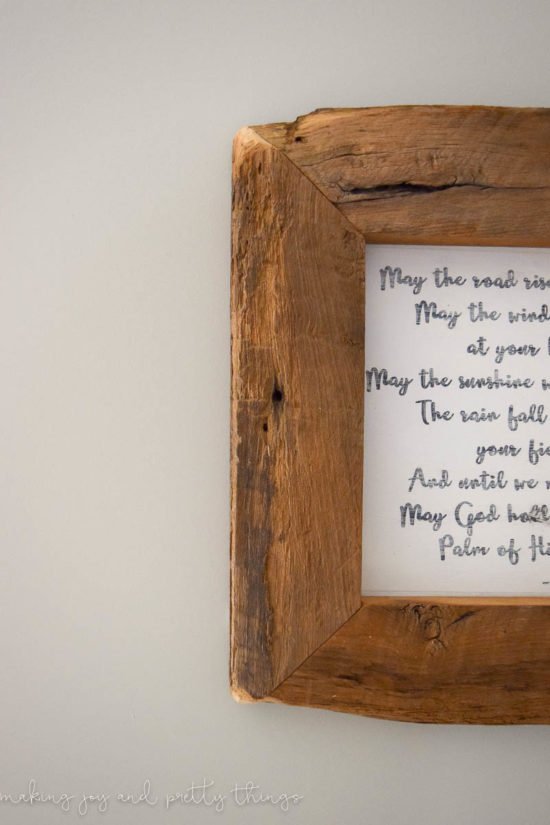 May the road rise
May the wind
at your
May the sunshine
The rain fall
your
And until we
May God
Palm of
making joy and pretty things